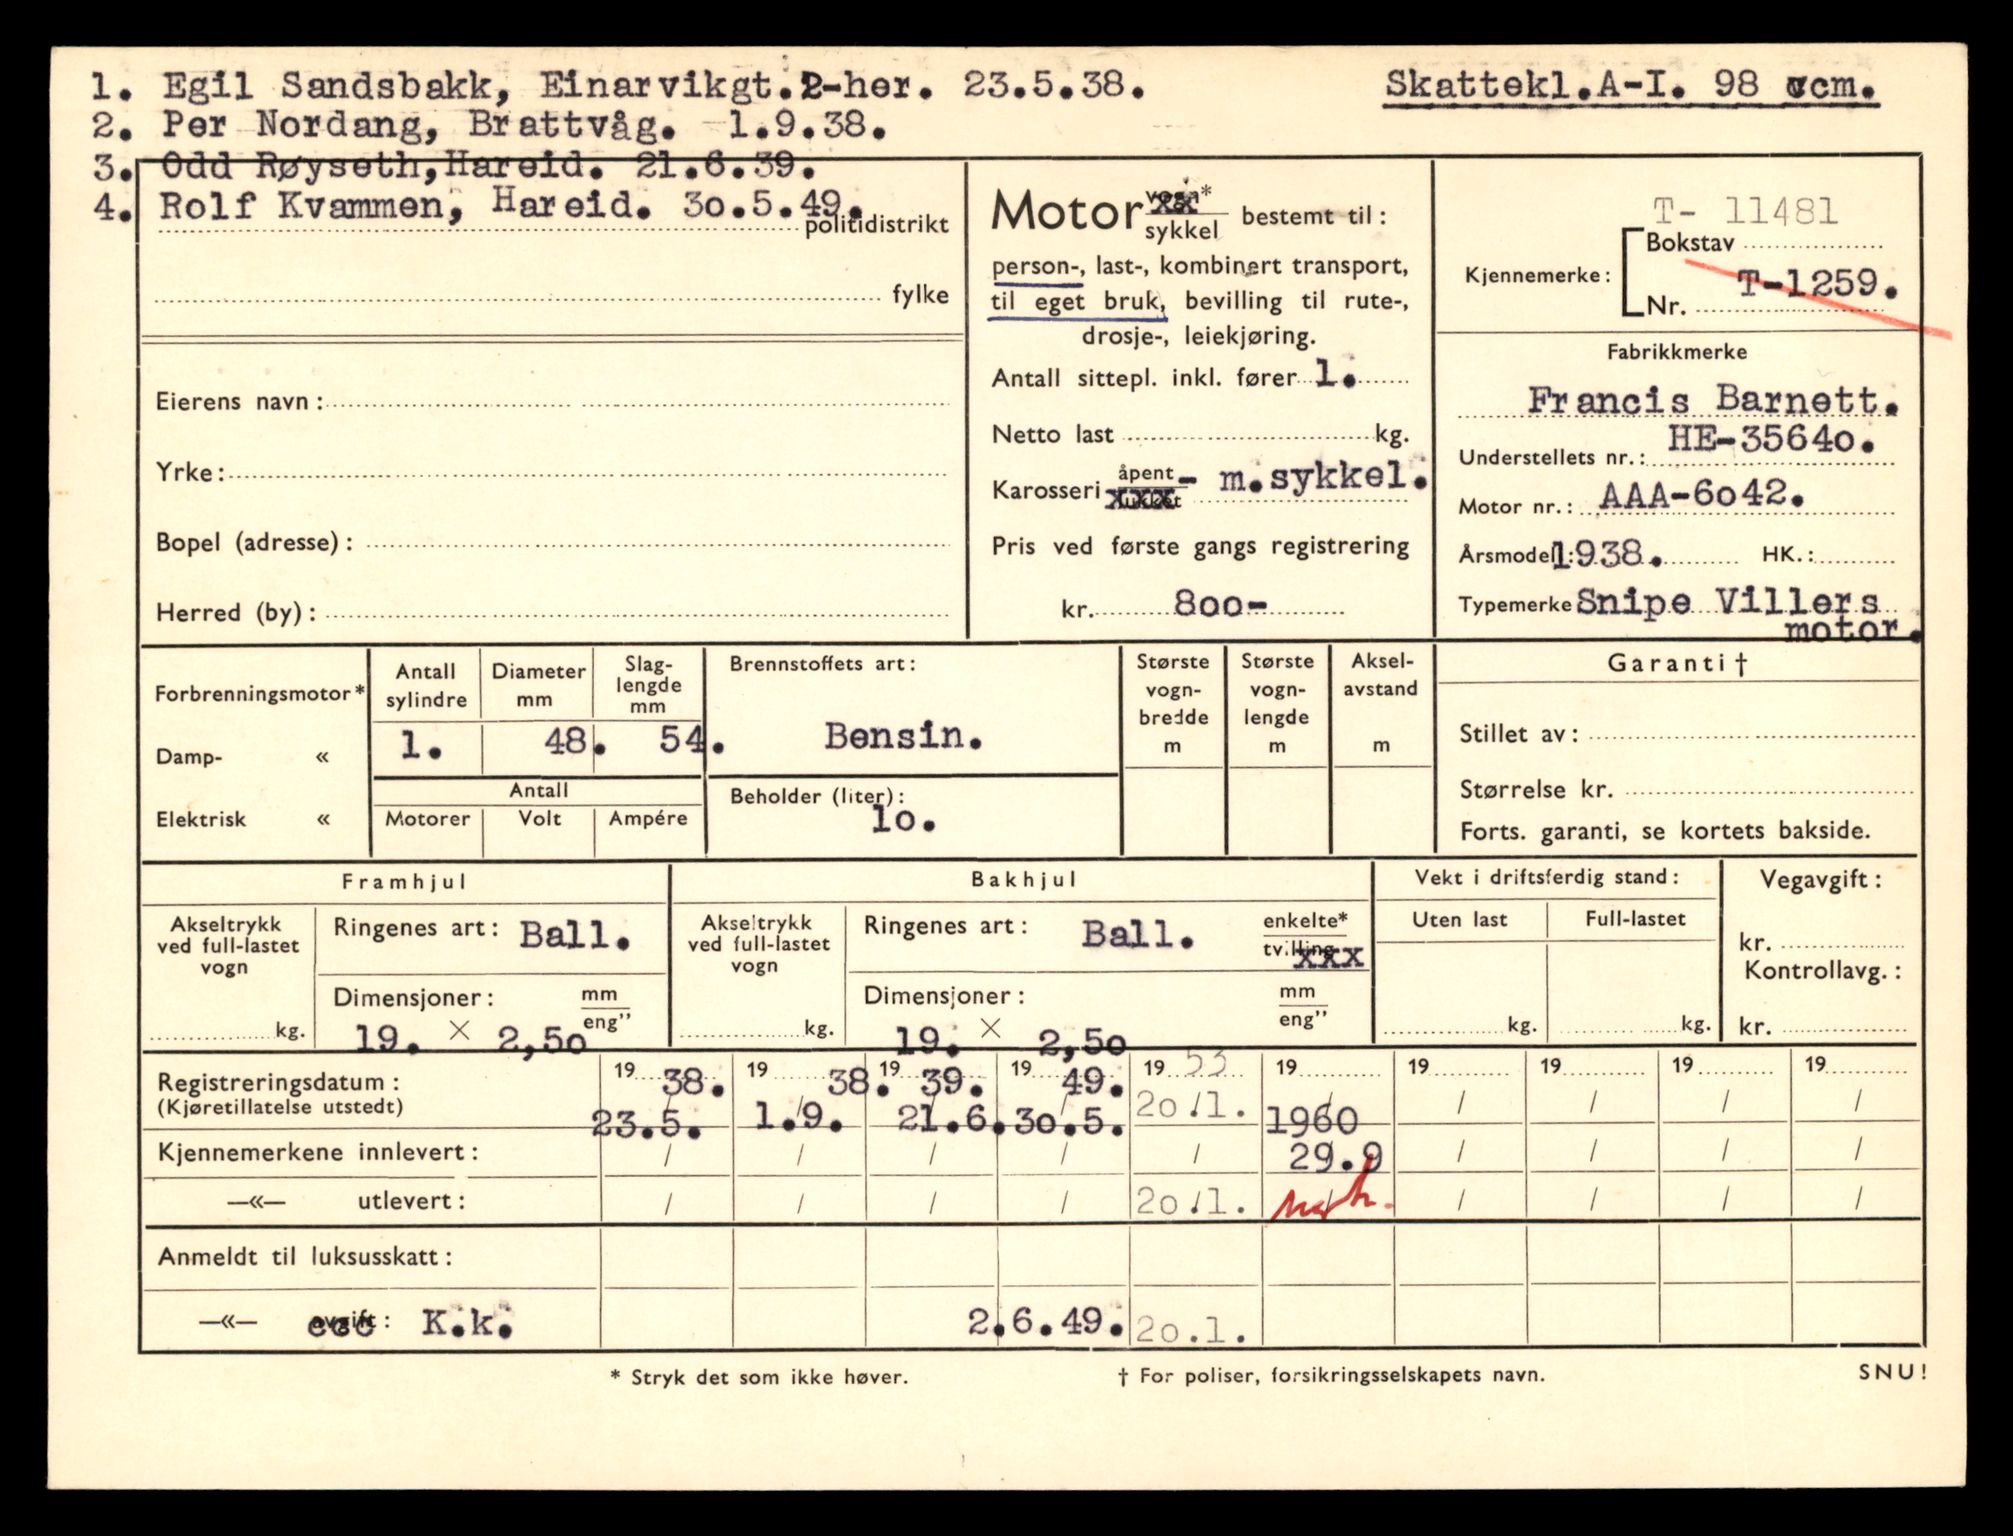 1. Egil Sandsbakk, Einarvikgt.2-her. 23.5.38. Skattekl.A-I. 98 ccm.
2. Per Nordang, Brattvåg. 1.9.38.
3. Odd Røyseth,Hareid. 21.6.39.
4. Rolf Kvammen, Hareid. 30.5.49.
politidistrikt
fylke
Eierens navn:
Yrke:
Bopel (adresse):
Herred (by):
Motor vogn* xx
sykkel bestemt til:
person-, last-, kombinert transport,
til eget bruk, bevilling til rute-,
drosje-, leiekjøring.
Antall sittepl. inkl. fører 1.
Netto last kg.
Karosseri åpent - m.sykkel.
lukket xxx
Pris ved første gangs registrering
kr. 800-
T- 11481
Bokstav
Kjennemerke:
T-1259.
Nr.
Fabrikkmerke
Francis Barnett.
Understellets nr.: HE-35640.
Motor nr.: AAA-6042.
Årsmodell: 1938. HK.:
Typemerke Snipe Villers
motor.
Forbrenningsmotor*
Damp- «
Elektrisk «
Antall sylindre
Diameter mm
Slag-lengde mm
1. 48. 54.
Antall
Motorer Volt Ampére
Brennstoffets art:
Bensin.
Beholder (liter):
10.
Største vogn-bredde m
Største vogn-lengde m
Aksel-avstand m
Garanti †
Stillet av:
Størrelse kr.
Forts. garanti, se kortets bakside.
Framhjul
Akseltrykk ved full-lastet vogn
kg.
Ringenes art: Ball.
Dimensjoner: mm
eng"
19. × 2,50
Bakhjul
Akseltrykk ved full-lastet vogn
kg.
Ringenes art: Ball. enkelte*
tvilling xxx
Dimensjoner: mm
eng"
19. × 2,50
Vekt i driftsferdig stand:
Uten last Full-lastet
kg. kg.
Vegavgift:
kr.
Kontrollavg.:
kr.
Registreringsdatum: 19 38. 19 38. 19 39. 19 49. 19 53 19 19 19 19 19
(Kjøretillatelse utstedt) 23.5. 1.9. 21.6. 30.5. 20.1. 1960 / / / /
Kjennemerkene innlevert: / / / / / 29.9 / / / /
—«— utlevert: / / / / 20.1. / / / / /
Anmeldt til luksusskatt:
—«— avgift: K.k. 2.6.49. 20.1.
* Stryk det som ikke høver.
† For poliser, forsikringsselskapets navn.
SNU!